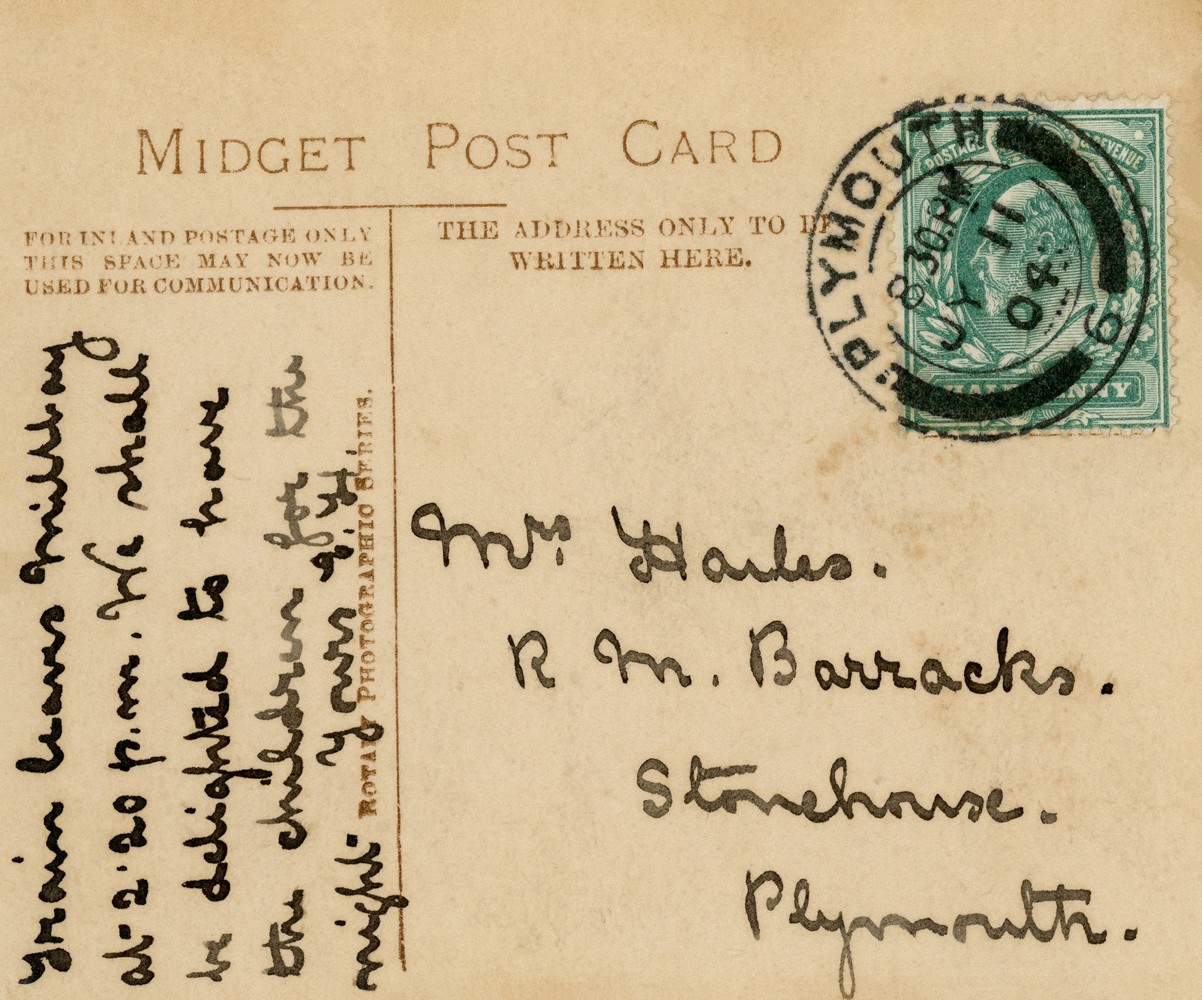 MIDGET POST CARD
FOR INLAND POSTAGE ONLY
THIS SPACE MAY NOW BE
USED FOR COMMUNICATION.
THE ADDRESS ONLY TO BE
WRITTEN HERE.
PLYMOUTH
8 30.PM
JY 11
04
6
POSTAGE & REVENUE
HALFPENNY
Train leaves Millbay
at 2.20 p.m. We shall
be delighted to have
the children for the
night Yours
ROTARY PHOTOGRAPHIC SERIES.
Mrs Hailes.
R M. Barracks.
Stonehouse.
Plymouth.